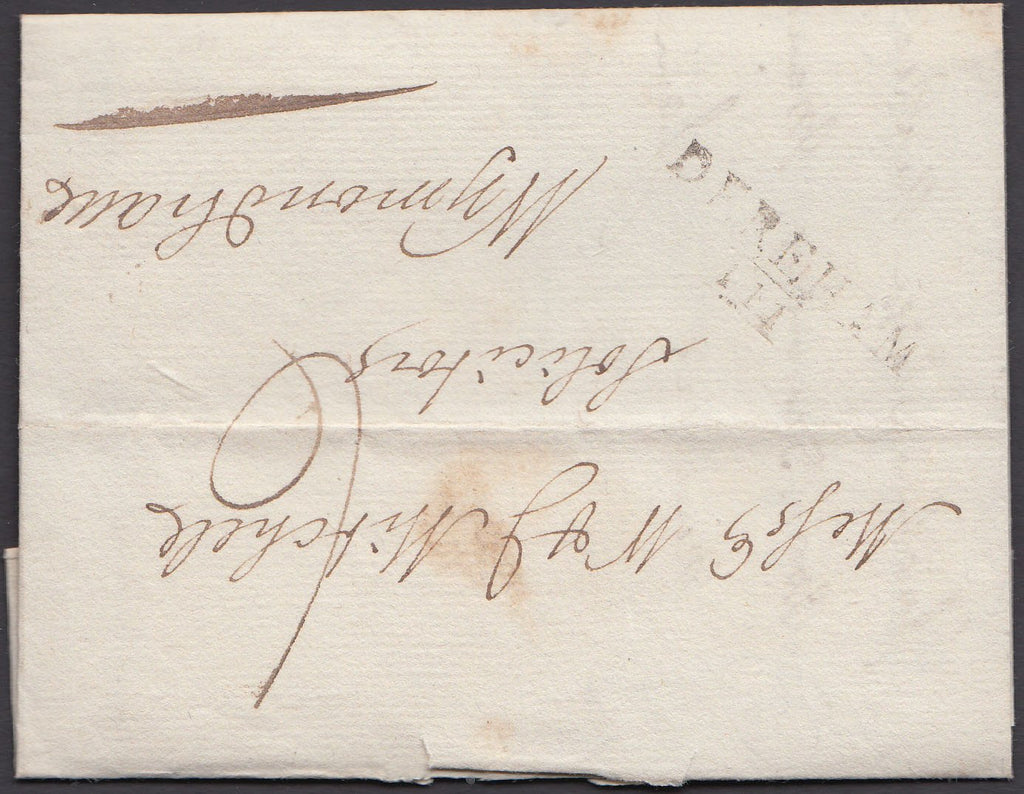 Messrs W & J Mitchell
Solicitors
Wymondham
6
DEREHAM